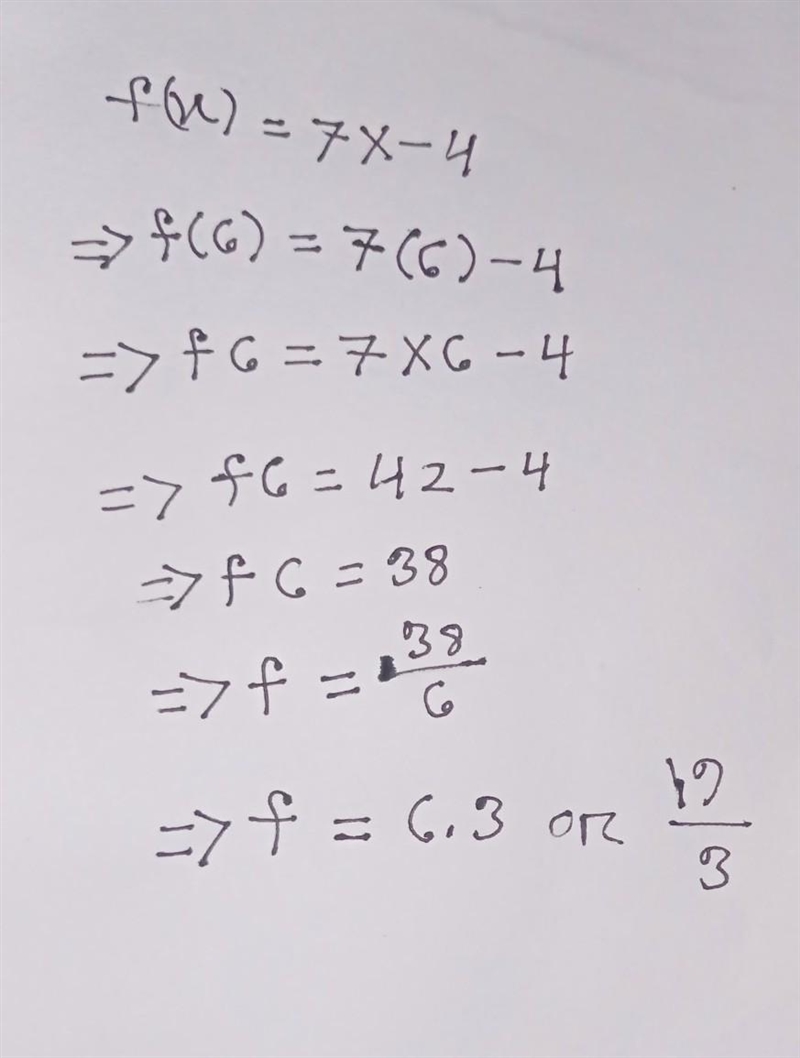 f(x) = 7x-4
=> f(6) = 7(6)-4
=> f6 = 7x6-4
=> f6 = 42-4
=> f6 = 38
=> f = 38/6
=> f = 6.3 or 19/3